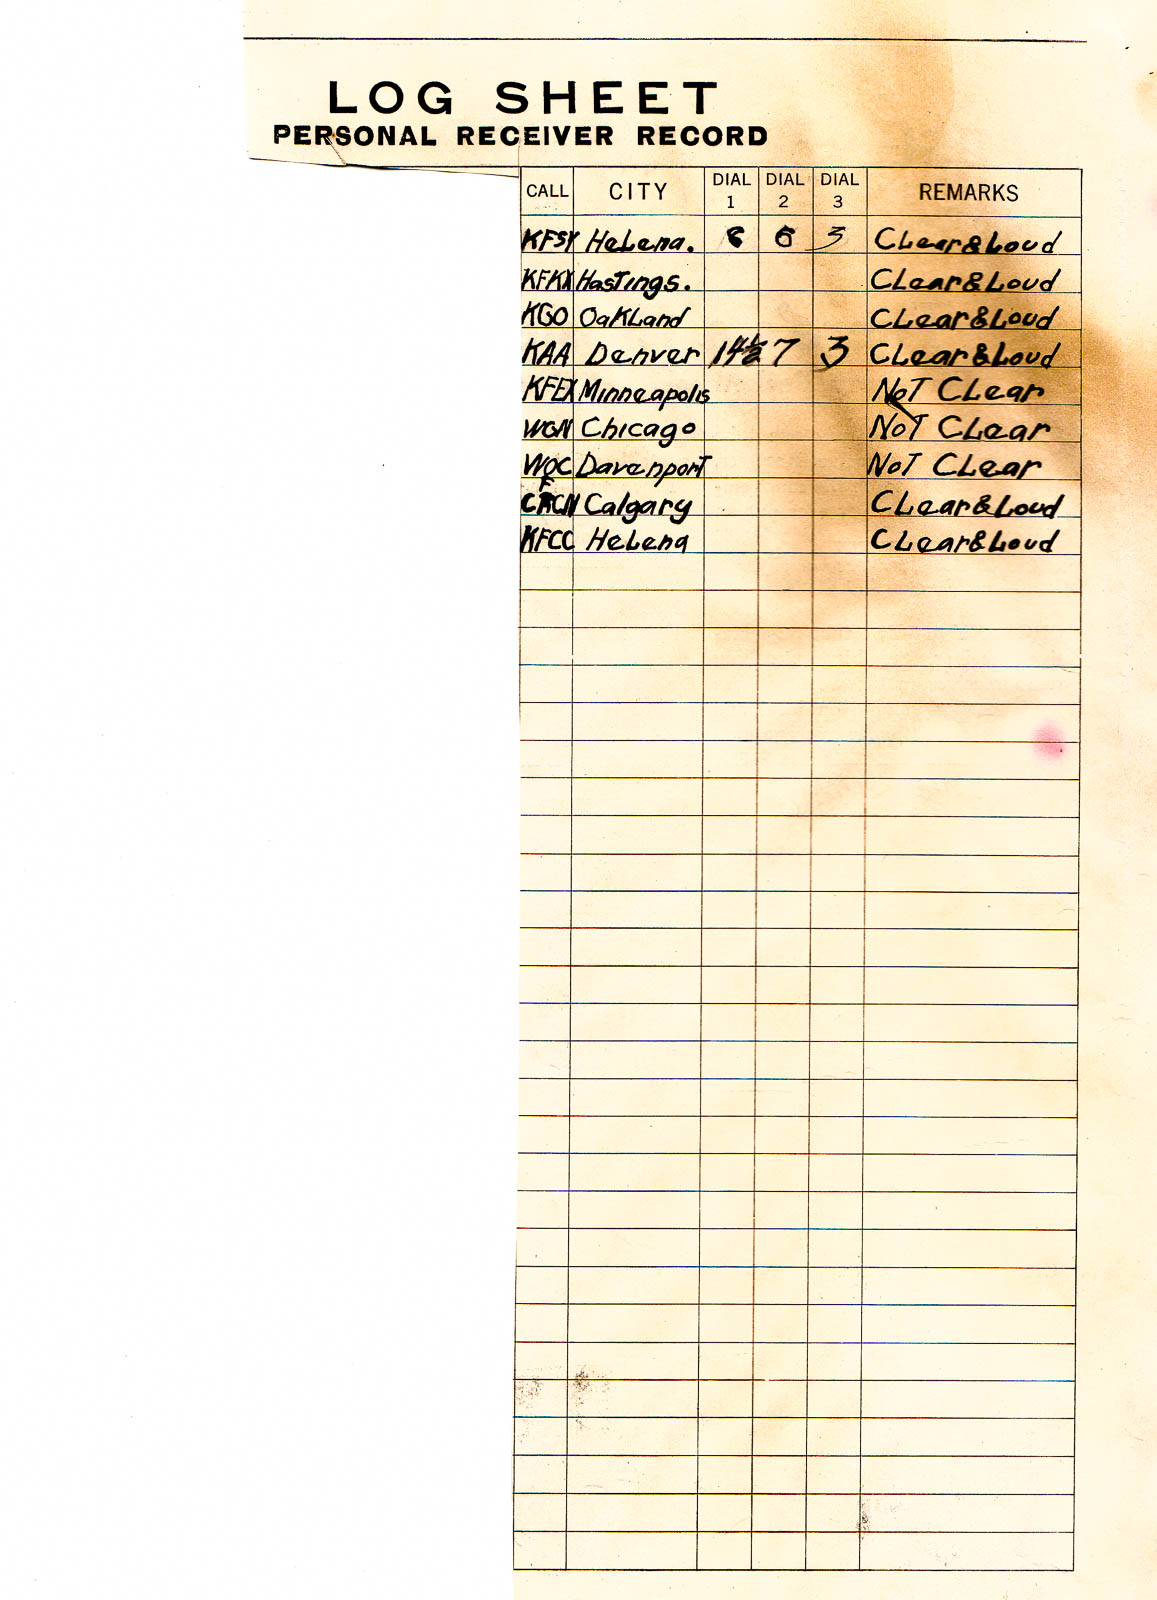 LOG SHEET
PERSONAL RECEIVER RECORD
CALL CITY DIAL 1 DIAL 2 DIAL 3 REMARKS
KFSY Helena. 8 6 3 Clear&Loud
KFKX Hastings. Clear&Loud
KGO Oakland Clear&Loud
KAA Denver 14½ 7 3 Clear&Loud
KFEX Minneapolis Not Clear
WGN Chicago Not Clear
WOC Davenport Not Clear
CFCN Calgary Clear&Loud
KFCC Helena Clear&Loud